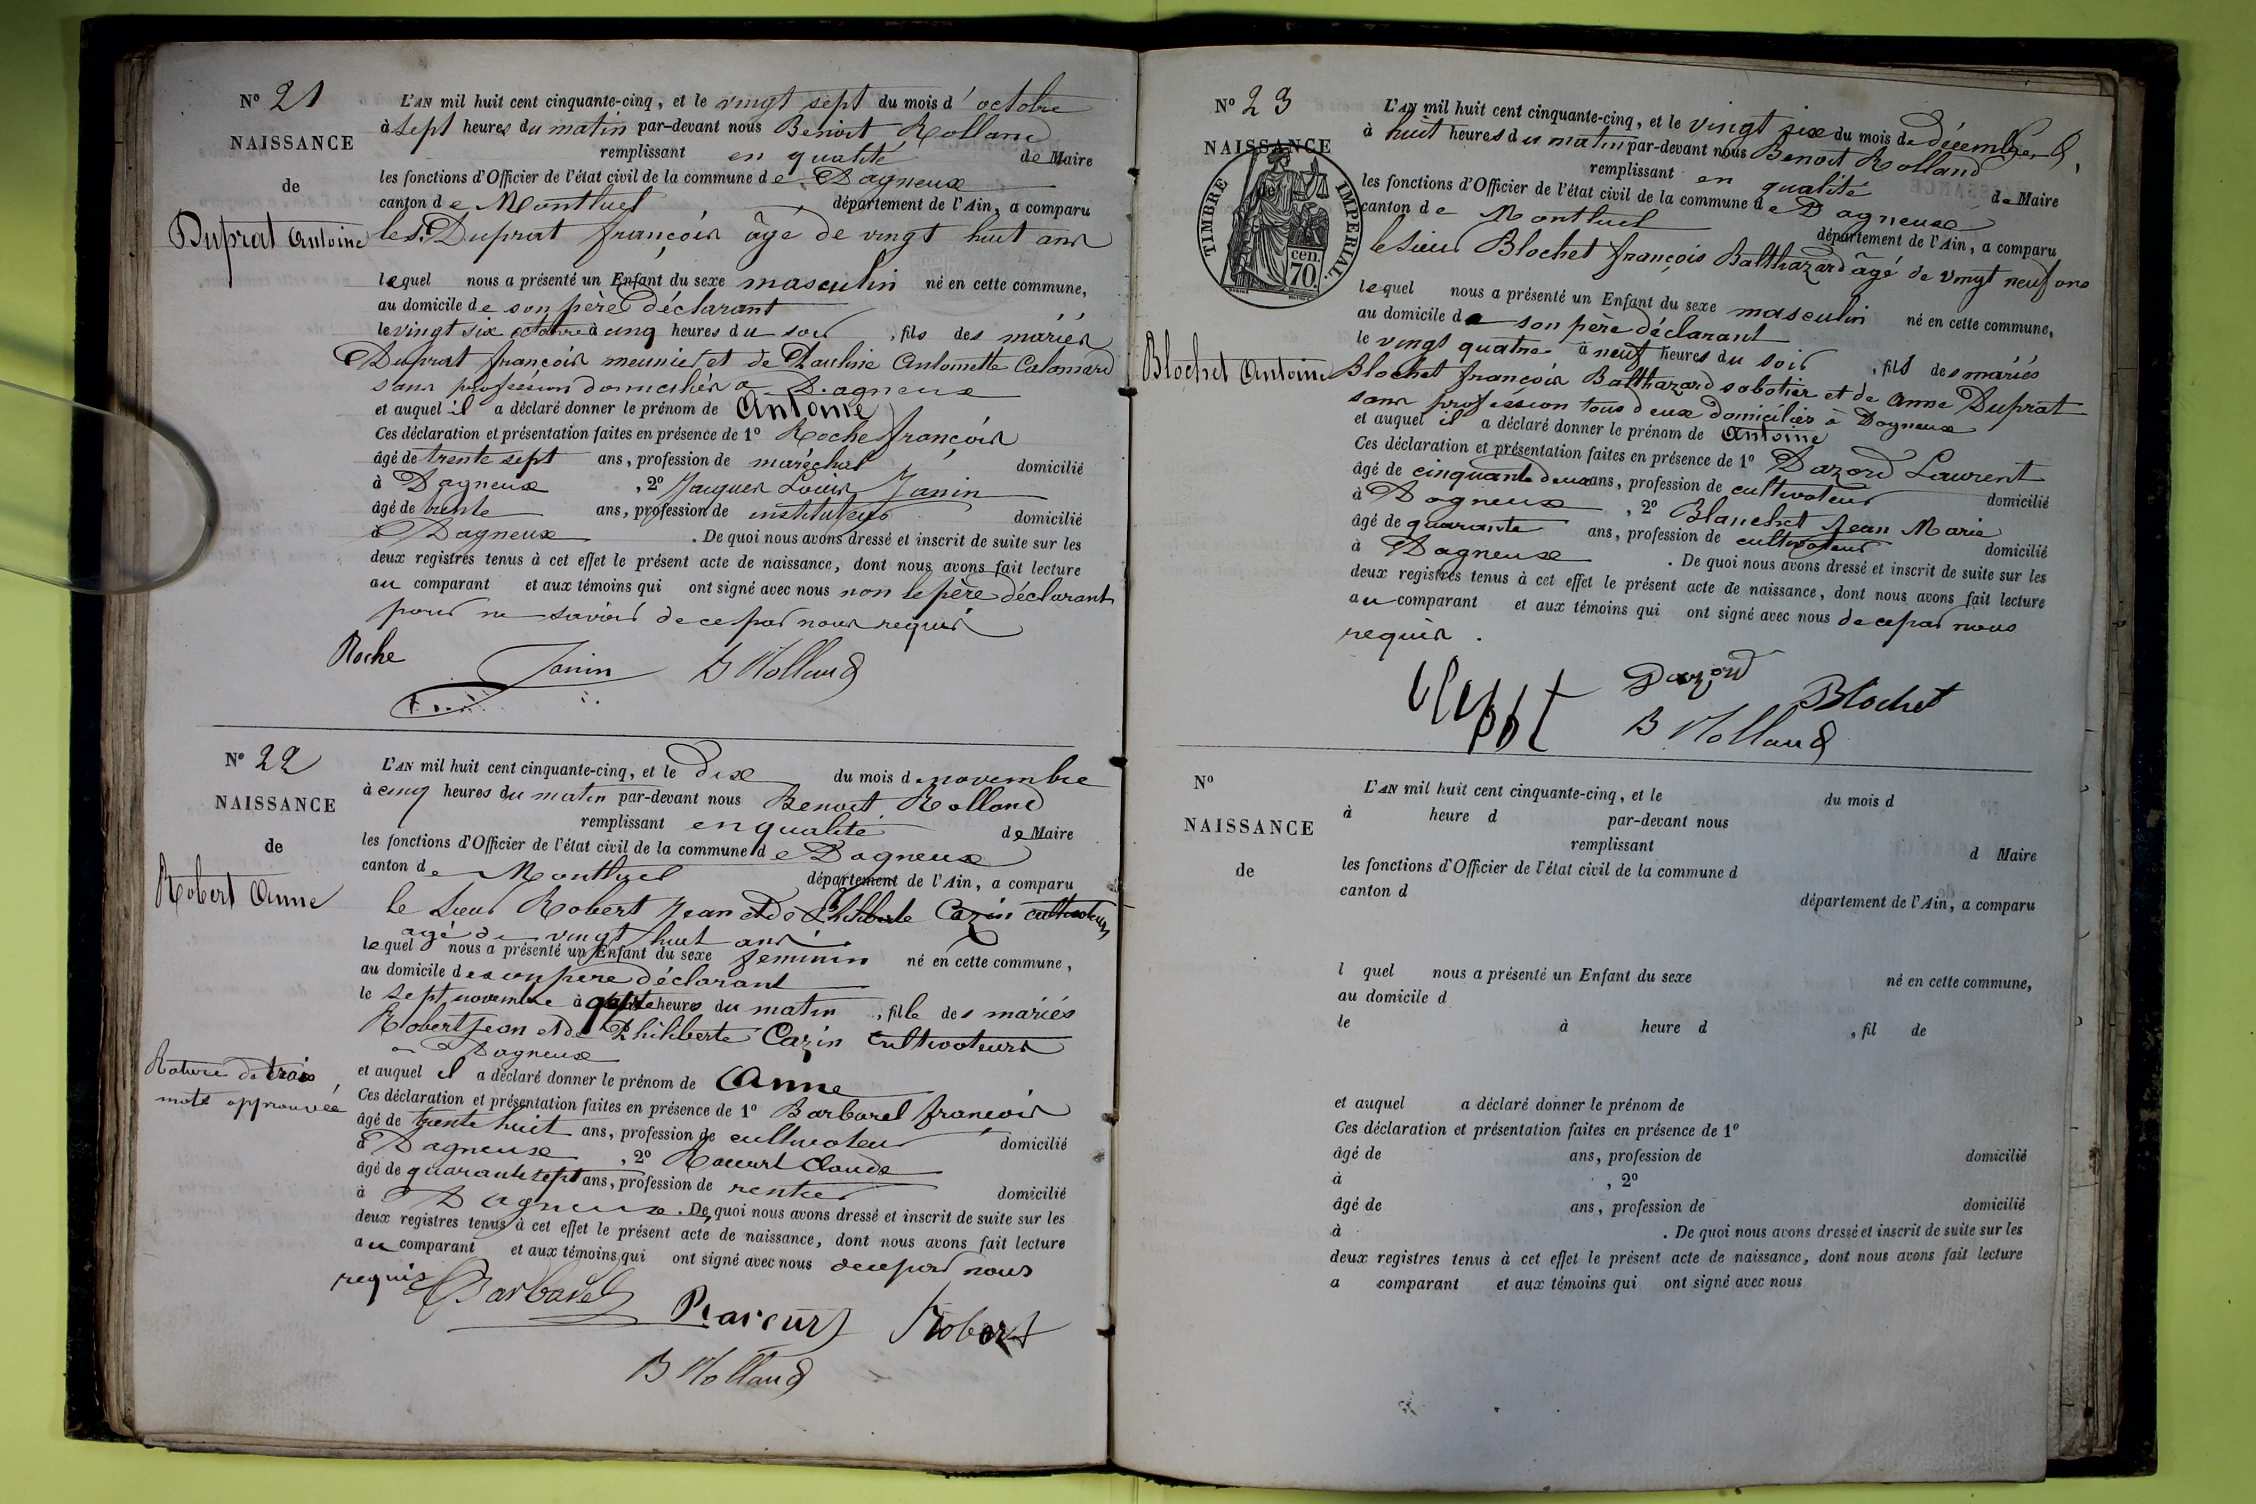 N° 21
NAISSANCE
de
Duprat Antoine
L'AN mil huit cent cinquante-cinq, et le vingt sept du mois d'octobre
à sept heures du matin par-devant nous Benoit Rolland
remplissant en qualité de Maire
les fonctions d'Officier de l'état civil de la commune de Dagneux
canton de Montluel département de l'Ain, a comparu
le Sr Duprat françois âgé de vingt huit ans
lequel nous a présenté un Enfant du sexe masculin né en cette commune,
au domicile de son père déclarant
le vingt six octobre à cinq heures du soir, fils des mariés
Duprat françois meunier et de Pauline Antoinette Calamard
sans profession domiciliés à Dagneux
et auquel il a déclaré donner le prénom de Antoine
Ces déclaration et présentation faites en présence de 1° Roche françois
âgé de trente sept ans, profession de maréchal domicilié
à Dagneux, 2° Jacques Louis Janin
âgé de trente ans, profession de instituteur domicilié
à Dagneux. De quoi nous avons dressé et inscrit de suite sur les
deux registres tenus à cet effet le présent acte de naissance, dont nous avons fait lecture
au comparant et aux témoins qui ont signé avec nous non le père déclarant
pour ne savoir de ce par nous requis
Roche Janin B Rolland
N° 22
NAISSANCE
de
Robert Anne
L'AN mil huit cent cinquante-cinq, et le dix du mois de novembre
à cinq heures du matin par-devant nous Benoit Rolland
remplissant en qualité de Maire
les fonctions d'Officier de l'état civil de la commune de Dagneux
canton de Montluel département de l'Ain, a comparu
le Sieur Robert Jean et de Philiberte Cazin cultivateurs
agé de vingt huit ans
lequel nous a présenté un Enfant du sexe feminin né en cette commune,
au domicile de son père déclarant
le sept novembre à heures du matin, fille des mariés
Robert Jean et de Philiberte Cazin cultivateurs
à Dagneux
Rature de trois
mots approuvée
et auquel il a déclaré donner le prénom de Anne
Ces déclaration et présentation faites en présence de 1° Barbarel françois
âgé de trente huit ans, profession de cultivateur domicilié
à Dagneux, 2° Claude
âgé de quarante sept ans, profession de rentier domicilié
à Dagneux. De quoi nous avons dressé et inscrit de suite sur les
deux registres tenus à cet effet le présent acte de naissance, dont nous avons fait lecture
au comparant et aux témoins qui ont signé avec nous de ce par nous
requis Barbarel
Robert
B Rolland
N° 23
NAISSANCE
de
TIMBRE IMPÉRIAL.
70 cen.
Blochet Antoine
L'AN mil huit cent cinquante-cinq, et le vingt six du mois de décembre
à huit heures du matin par-devant nous Benoit Rolland
remplissant en qualité de Maire
les fonctions d'Officier de l'état civil de la commune de Dagneux
canton de Montluel département de l'Ain, a comparu
le Sieur Blochet françois Balthazard âgé de vingt neuf ans
lequel nous a présenté un Enfant du sexe masculin né en cette commune,
au domicile de son père déclarant
le vingt quatre à neuf heures du soir, fils des mariés
Blochet françois Balthazard sabotier et de Anne Duprat
sans profession tous deux domiciliés à Dagneux
et auquel il a déclaré donner le prénom de Antoine
Ces déclaration et présentation faites en présence de 1° Dazord Laurent
âgé de cinquante deux ans, profession de cultivateur domicilié
à Dagneux, 2° Blanchet Jean Marie
âgé de quarante ans, profession de cultivateur domicilié
à Dagneux. De quoi nous avons dressé et inscrit de suite sur les
deux registres tenus à cet effet le présent acte de naissance, dont nous avons fait lecture
au comparant et aux témoins qui ont signé avec nous de ce par nous
requis.
Dazord Blochet
B Rolland
N°
NAISSANCE
de
L'AN mil huit cent cinquante-cinq, et le du mois d
à heure d par-devant nous
remplissant d Maire
les fonctions d'Officier de l'état civil de la commune d
canton d département de l'Ain, a comparu
l quel nous a présenté un Enfant du sexe né en cette commune,
au domicile d
le à heure d , fil de
et auquel a déclaré donner le prénom de
Ces déclaration et présentation faites en présence de 1°
âgé de ans, profession de domicilié
à , 2°
âgé de ans, profession de domicilié
à . De quoi nous avons dressé et inscrit de suite sur les
deux registres tenus à cet effet le présent acte de naissance, dont nous avons fait lecture
a comparant et aux témoins qui ont signé avec nous